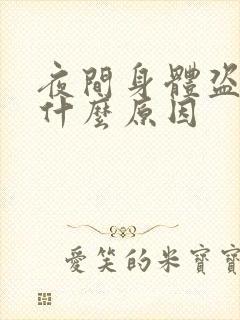 夜間身體盜
什麼原因
愛笑的米寶寶